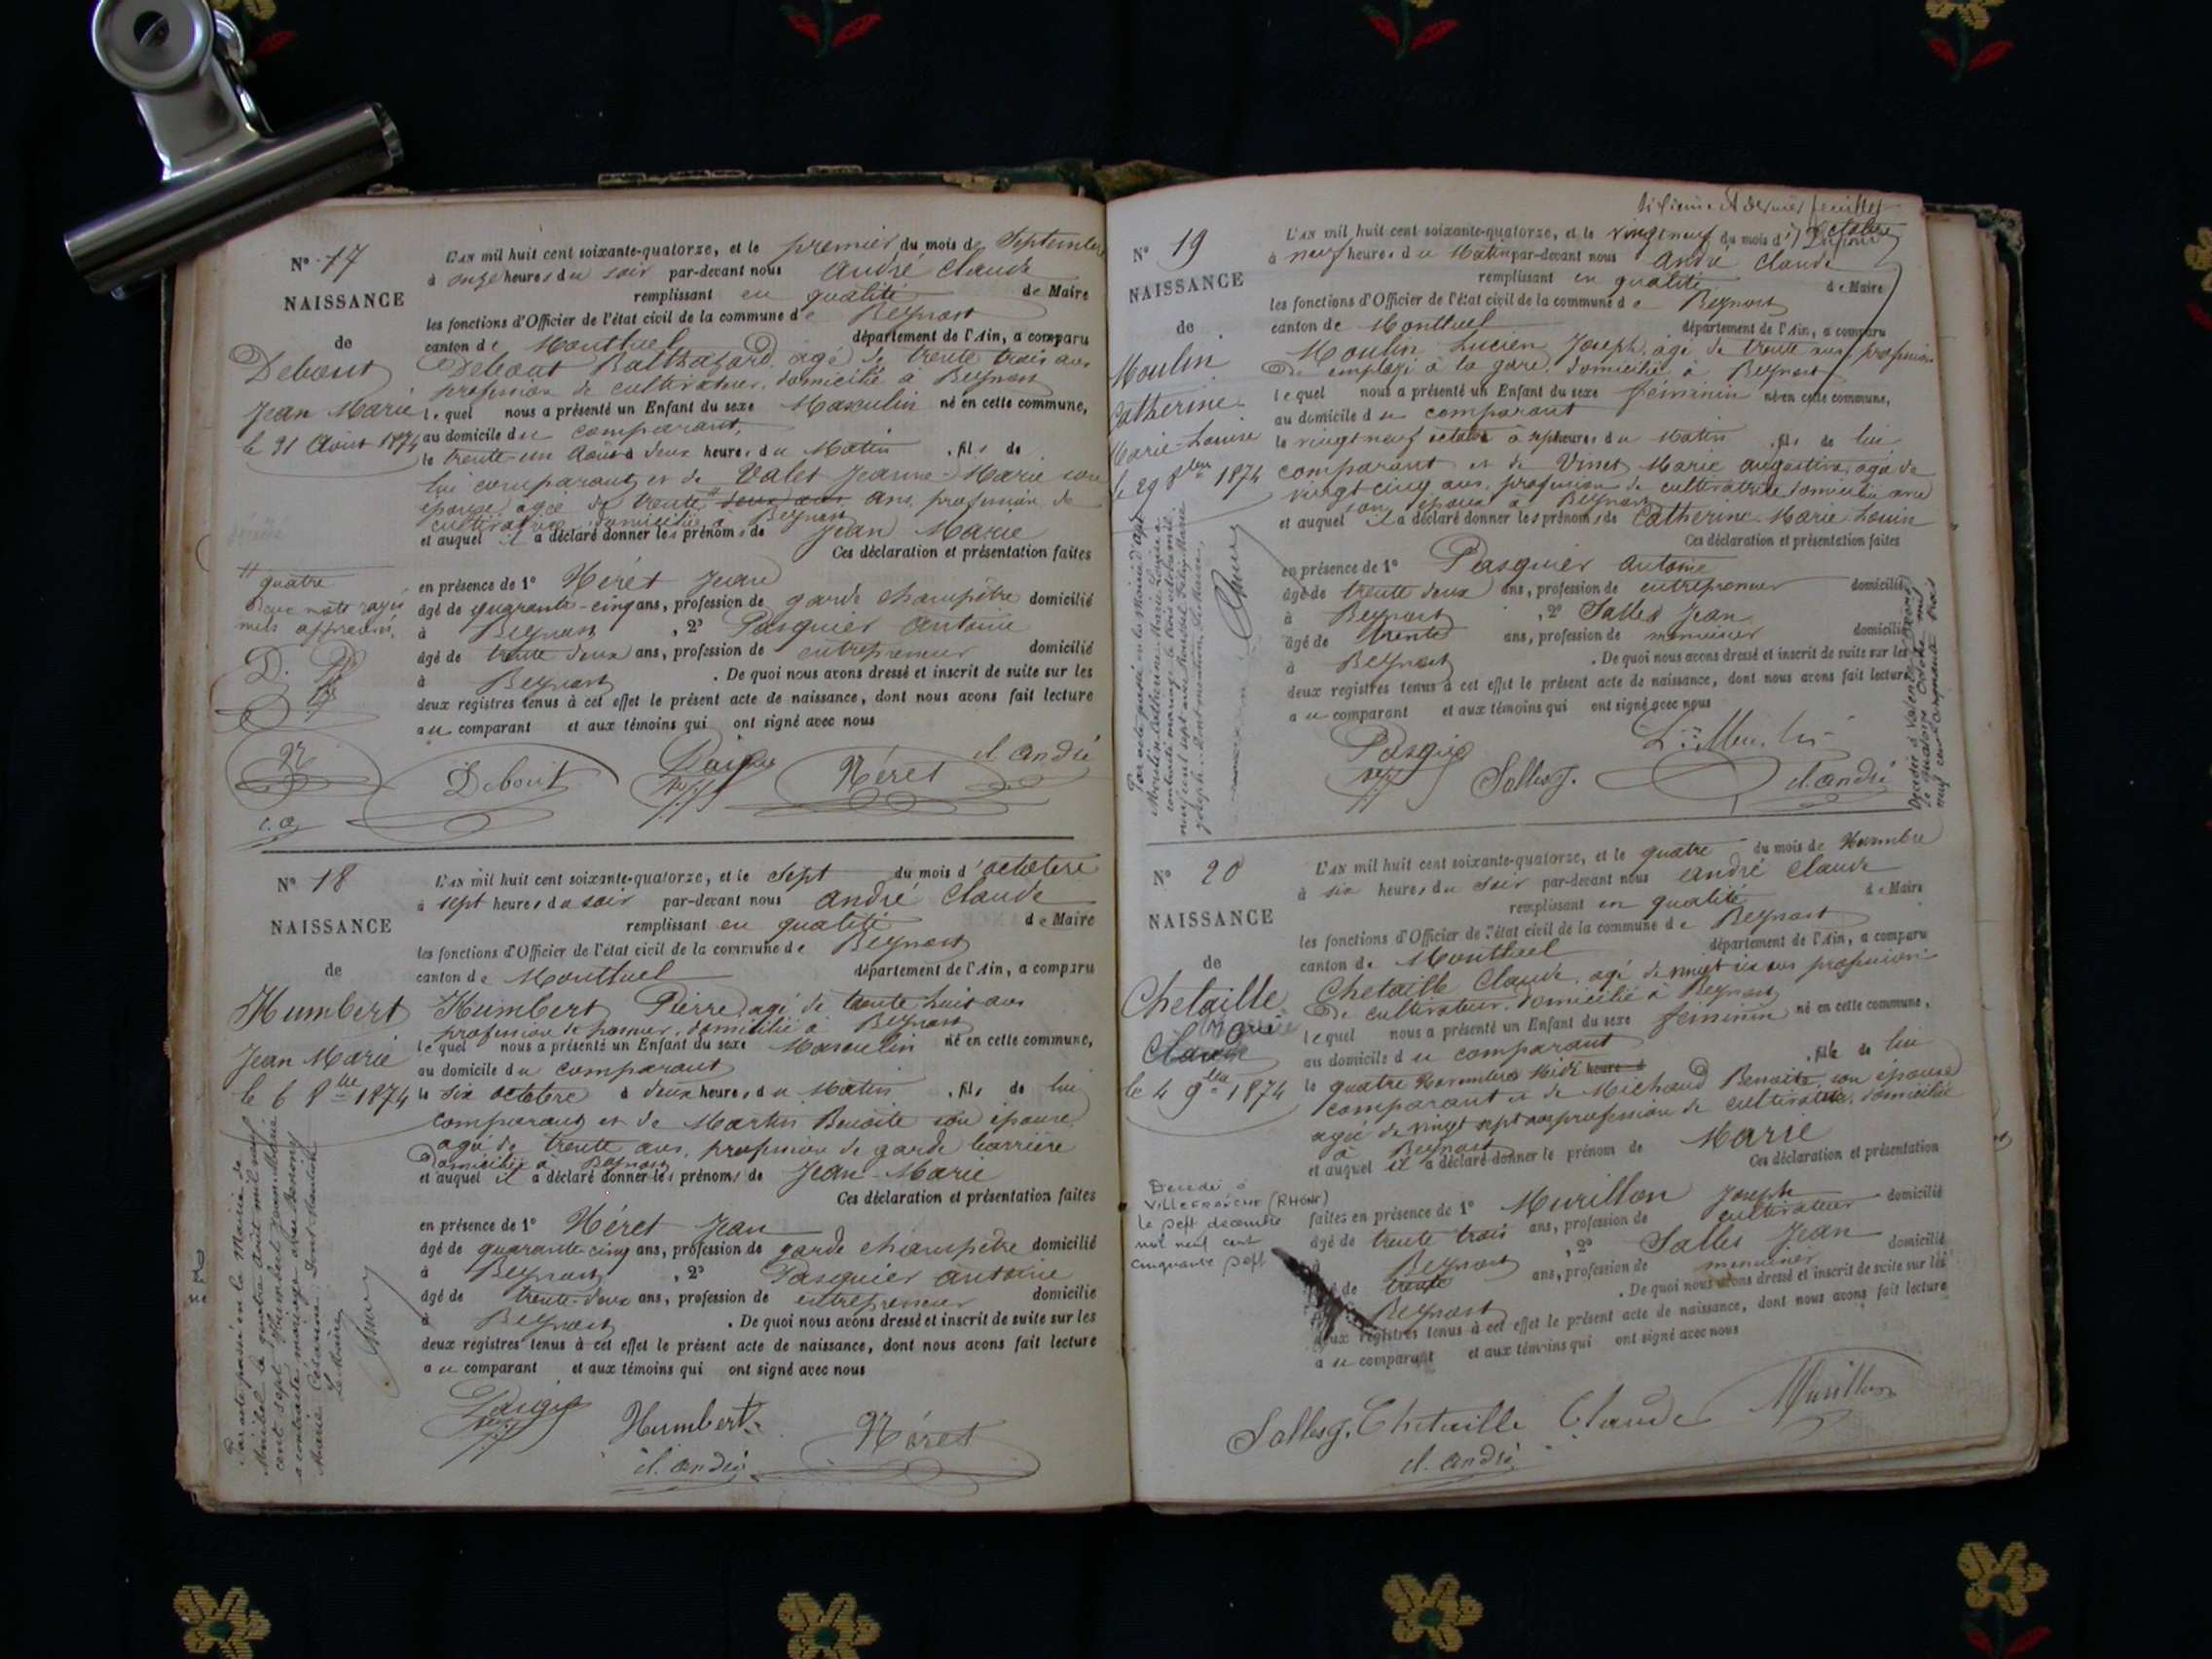 Nº 17
NAISSANCE
de
Debout
Jean Marie
le 31 Août 1874
L'AN mil huit cent soixante-quatorze, et le premier du mois de Septembre
à onze heures du soir par-devant nous André Claude
remplissant en qualité de Maire
les fonctions d'Officier de l'état civil de la commune de Beynost
canton de Montluel département de l'Ain, a comparu
Debout Balthazard, agé de trente trois ans
profession de cultivateur, domicilié à Beynost
lequel nous a présenté un Enfant du sexe Masculin né en cette commune,
au domicile du comparant,
le trente-un Août à deux heures du Matin, fils de
lui comparant et de Valet Jeanne-Marie son
épouse, agée de trente deux ans ans, profession de
cultivatrice domiciliée à Beynost
et auquel il a déclaré donner les prénoms de Jean Marie
Ces déclaration et présentation faites
quatre
deux mots rayés
en présence de 1º Néret Jean
âgé de quarante-cinq ans, profession de garde champêtre domicilié
à Beynost, 2º Pasquier Antoine
âgé de trente deux ans, profession de entrepreneur domicilié
à Beynost. De quoi nous avons dressé et inscrit de suite sur les
deux registres tenus à cet effet le présent acte de naissance, dont nous avons fait lecture
au comparant et aux témoins qui ont signé avec nous
Debout Néret cl. André
Nº 18
NAISSANCE
de
Humbert
Jean Marie
le 6 8bre 1874
L'AN mil huit cent soixante-quatorze, et le sept du mois d'octobre
à sept heures du soir par-devant nous André Claude
remplissant en qualité de Maire
les fonctions d'Officier de l'état civil de la commune de Beynost
canton de Montluel département de l'Ain, a comparu
Humbert Pierre, agé de trente huit ans
profession de poseur, domicilié à Beynost
lequel nous a présenté un Enfant du sexe Masculin né en cette commune,
au domicile du comparant
le six octobre à deux heures du Matin, fils de lui
comparant et de Martin Benoite son épouse
agée de trente ans, profession de garde barrière
domiciliée à Beynost
et auquel il a déclaré donner les prénoms de Jean-Marie
Ces déclaration et présentation faites
en présence de 1º Néret Jean
âgé de quarante-cinq ans, profession de garde champêtre domicilié
à Beynost, 2º Pasquier Antoine
âgé de trente-deux ans, profession de entrepreneur domicilié
à Beynost. De quoi nous avons dressé et inscrit de suite sur les
deux registres tenus à cet effet le présent acte de naissance, dont nous avons fait lecture
au comparant et aux témoins qui ont signé avec nous
Humbert Néret
cl. André
Par acte passé en la Mairie de
le quatre Août mil neuf
cent sept Humbert Jean-Marie
a contracté mariage avec
Marie Dont Mention
Le Maire
dernier feuillet
Nº 19
NAISSANCE
de
Moulin
Catherine
Marie-Louise
le 29 8bre 1874
L'AN mil huit cent soixante-quatorze, et le vingt neuf du mois d'octobre
à neuf heures du Matin par-devant nous André Claude
remplissant en qualité de Maire
les fonctions d'Officier de l'état civil de la commune de Beynost
canton de Montluel département de l'Ain, a comparu
Moulin Lucien Joseph, agé de trente ans, profession
de employé à la gare, domicilié à Beynost
lequel nous a présenté un Enfant du sexe féminin né en cette commune,
au domicile du comparant
le vingt neuf octobre à sept heures du Matin, fils de lui
comparant et de Vinet Marie Augustine, agée de
vingt cinq ans, profession de cultivatrice domiciliée avec
son époux à Beynost
et auquel il a déclaré donner les prénoms de Catherine Marie Louise
Ces déclaration et présentation faites
en présence de 1º Pasquier Antoine
âgé de trente deux ans, profession de entrepreneur domicilié
à Beynost, 2º Salles Jean
âgé de trente ans, profession de menuisier domicilié
à Beynost. De quoi nous avons dressé et inscrit de suite sur les
deux registres tenus à cet effet le présent acte de naissance, dont nous avons fait lecture
au comparant et aux témoins qui ont signé avec nous
Salles J. cl. André
Moulin Catherine Marie Louise a
contracté mariage
Décédée à Valence
le quatorze octobre mil
neuf cent cinquante trois
Nº 20
NAISSANCE
de
Chetaille
Marie
Claude
le 4 9bre 1874
L'AN mil huit cent soixante-quatorze, et le quatre du mois de Novembre
à six heures du soir par-devant nous André Claude
remplissant en qualité de Maire
les fonctions d'Officier de l'état civil de la commune de Beynost
canton de Montluel département de l'Ain, a comparu
Chetaille Claude, agé de vingt six ans profession
de cultivateur, domicilié à Beynost
lequel nous a présenté un Enfant du sexe féminin né en cette commune,
au domicile du comparant
le quatre Novembre Midi heures d, fille de lui
comparant et de Michaud Benoite, son épouse
agée de vingt sept ans profession de cultivatrice, domiciliée
à Beynost
et auquel il a déclaré donner le prénom de Marie
Ces déclaration et présentation
faites en présence de 1º Murillon Joseph
âgé de trente trois ans, profession de cultivateur domicilié
à Beynost, 2º Salles Jean
âgé de trente ans, profession de menuisier domicilié
à Beynost. De quoi nous avons dressé et inscrit de suite sur les
deux registres tenus à cet effet le présent acte de naissance, dont nous avons fait lecture
au comparant et aux témoins qui ont signé avec nous
Décédée à
VILLEFRANCHE (RHONE)
le sept décembre
mil neuf cent
cinquante sept
Salles J. Chetaille Claude Murillon
cl. André